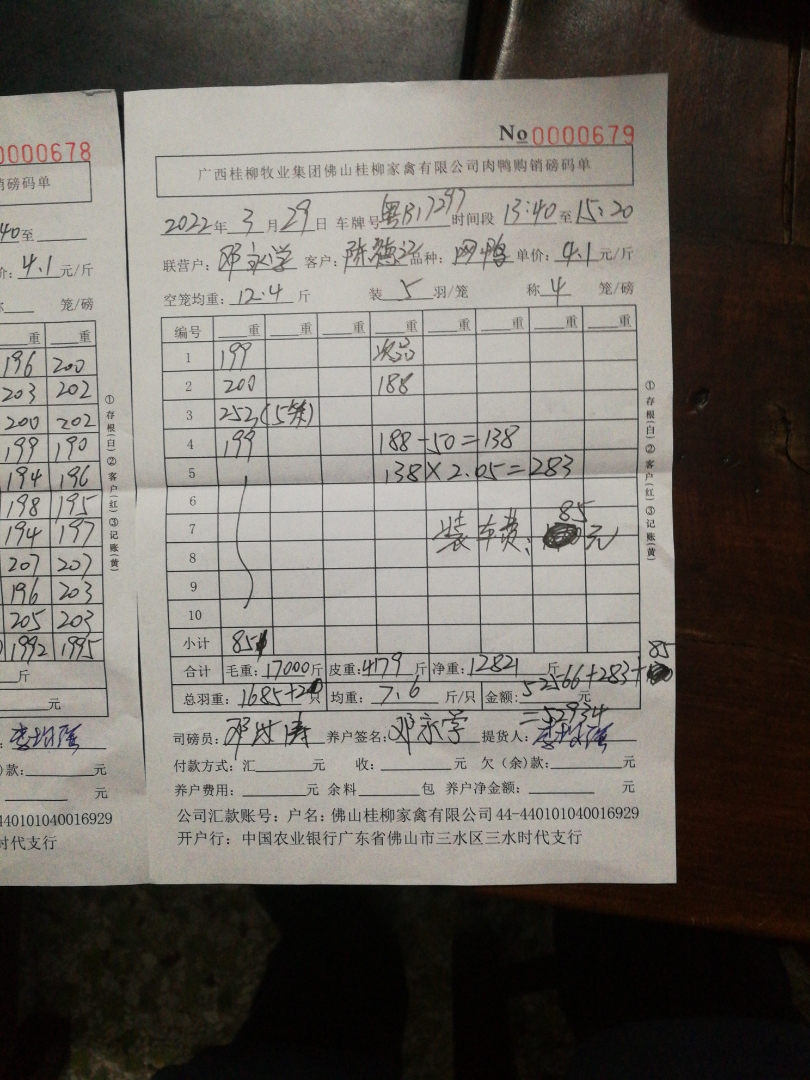 0000678
销磅码单
40至
价：4.1元/斤
笼/磅
重 重
196 200
203 202
200 202
199 190
194 196
198 195
194 197
207 207
196 203
205 203
1992 1995
斤
元
)款：元
元
440101040016929
时代支行
①存根(白)②客户(红)③记账(黄)
No 0000679
广西桂柳牧业集团佛山桂柳家禽有限公司肉鸭购销磅码单
2022年3月29日 车牌号 粤B17297 时间段 13:40至15:20
联营户：邓永学 客户：陈德 品种：鸭 单价：4.1元/斤
空笼均重：12.4斤 装5羽/笼 称4笼/磅
编号 重 重 重 重 重 重 重 重
1 199 次品
2 200 188
3 252(5笼)
4 199 188-50=138
5 138×2.05=283
6
7 装车费：85元
8
9
10
小计 851
合计 毛重：17000斤 皮重：4179斤 净重：12821斤
总羽重：1685+20只 均重：7.6斤/只 金额：52566+283+85元
=52934
司磅员：邓 养户签名：邓永学 提货人：李
付款方式：汇元 收：元 欠（余)款：元
养户费用：元 余料包 养户净金额：元
公司汇款账号：户名：佛山桂柳家禽有限公司 44-440101040016929
开户行：中国农业银行广东省佛山市三水区三水时代支行
①存根(白)②客户(红)③记账(黄)